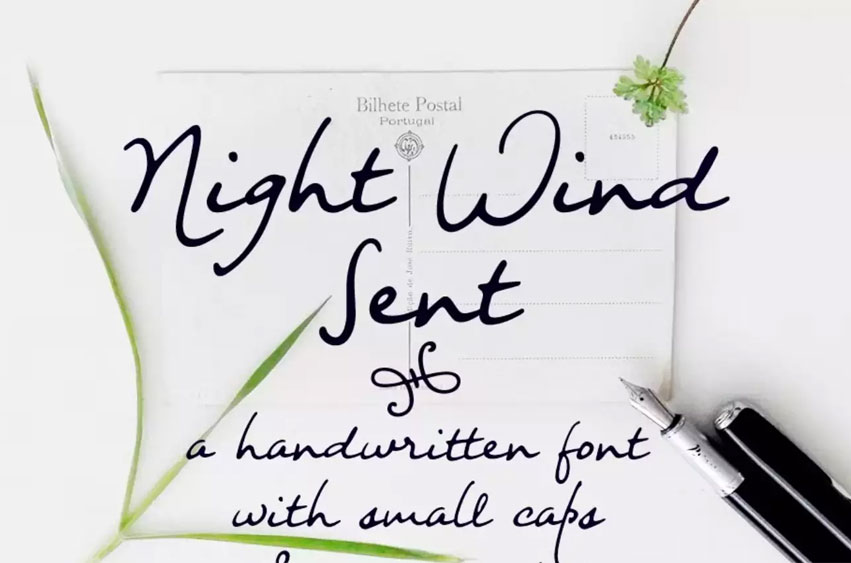 Bilhete Postal
Portugal
Night Wind
Sent
a handwritten font
with small caps